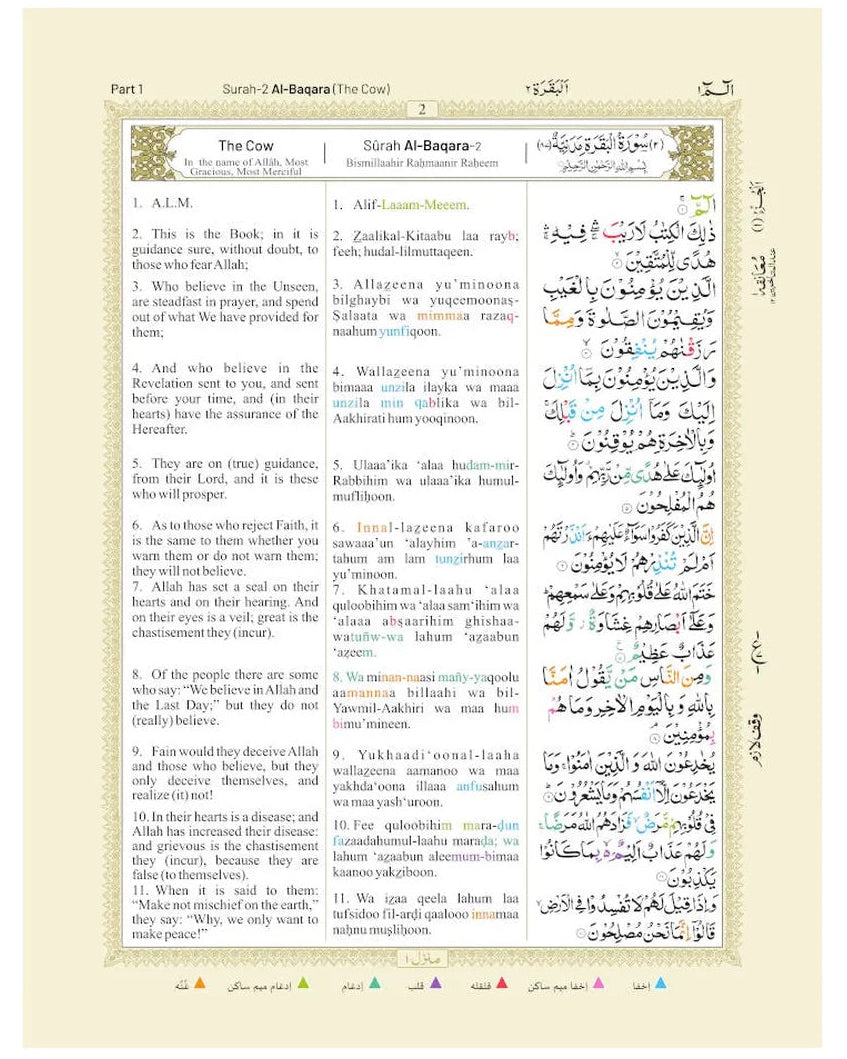 Part 1
Surah-2 Al-Baqara (The Cow)
اَلْبَقَرَة ٢
الٓمّٓ ١
2
The Cow
In the name of Allâh, Most
Gracious, Most Merciful
Sûrah Al-Baqara-2
Bismillaahir Raḥmaanir Raḥeem
(٢) سُوْرَةُ الْبَقَرَةِ مَدَنِيَّةٌ (٨٧)
بِسْمِ اللهِ الرَّحْمٰنِ الرَّحِيْمِ
1. A.L.M.
2. This is the Book; in it is
guidance sure, without doubt, to
those who fear Allah;
3. Who believe in the Unseen,
are steadfast in prayer, and spend
out of what We have provided for
them;
4. And who believe in the
Revelation sent to you, and sent
before your time, and (in their
hearts) have the assurance of the
Hereafter.
5. They are on (true) guidance,
from their Lord, and it is these
who will prosper.
6. As to those who reject Faith, it
is the same to them whether you
warn them or do not warn them;
they will not believe.
7. Allah has set a seal on their
hearts and on their hearing. And
on their eyes is a veil; great is the
chastisement they (incur).
8. Of the people there are some
who say: “We believe in Allah and
the Last Day;” but they do not
(really) believe.
9. Fain would they deceive Allah
and those who believe, but they
only deceive themselves, and
realize (it) not!
10. In their hearts is a disease; and
Allah has increased their disease:
and grievous is the chastisement
they (incur), because they are
false (to themselves).
11. When it is said to them:
“Make not mischief on the earth,”
they say: “Why, we only want to
make peace!”
1. Alif-Laaam-Meeem.
2. Z̲aalikal-Kitaabu laa rayb;
feeh; hudal-lilmuttaqeen.
3. Allaz̲eena yu’minoona
bilghaybi wa yuqeemoonaṣ-
Ṣalaata wa mimmaa razaq-
naahum yunfiqoon.
4. Wallaz̲eena yu’minoona
bimaaa unzila ilayka wa maaa
unzila min qablika wa bil-
Aakhirati hum yooqinoon.
5. Ulaaa’ika ‘alaa hudam-mir-
Rabbihim wa ulaaa’ika humul-
mufliḥoon.
6. Innal-laz̲eena kafaroo
sawaaa’un ‘alayhim ’a-anz̲ar-
tahum am lam tunz̲irhum laa
yu’minoon.
7. Khatamal-laahu ‘alaa
quloobihim wa ‘alaa sam‘ihim wa
‘alaaa abṣaarihim ghishaa-
watuñw-wa lahum ‘az̲aabun
‘aẓeem.
8. Wa minan-naasi mañy-yaqoolu
aamannaa billaahi wa bil-
Yawmil-Aakhiri wa maa hum
bimu’mineen.
9. Yukhaadi‘oonal-laaha
wallaz̲eena aamanoo wa maa
yakhda‘oona illaaa anfusahum
wa maa yash‘uroon.
10. Fee quloobihim mara-ḍun
fazaadahumul-laahu maraḍa; wa
lahum ‘az̲aabun aleemum-bimaa
kaanoo yakz̲iboon.
11. Wa iz̲aa qeela lahum laa
tufsidoo fil-arḍi qaalooo innamaa
naḥnu muṣliḥoon.
الٓمّٓ ۚ ﴿١﴾
ذٰلِكَ الْكِتٰبُ لَا رَيْبَ ۛ فِيْهِ ۛ
هُدًى لِّلْمُتَّقِيْنَ ﴿٢﴾
الَّذِيْنَ يُؤْمِنُوْنَ بِالْغَيْبِ
وَيُقِيْمُوْنَ الصَّلٰوةَ وَمِمَّا
رَزَقْنٰهُمْ يُنْفِقُوْنَ ﴿٣﴾
وَالَّذِيْنَ يُؤْمِنُوْنَ بِمَآ اُنْزِلَ
اِلَيْكَ وَمَآ اُنْزِلَ مِنْ قَبْلِكَ ۚ
وَبِالْاٰخِرَةِ هُمْ يُوْقِنُوْنَ ﴿٤﴾
اُولٰٓئِكَ عَلٰى هُدًى مِّنْ رَّبِّهِمْ وَاُولٰٓئِكَ
هُمُ الْمُفْلِحُوْنَ ﴿٥﴾
اِنَّ الَّذِيْنَ كَفَرُوْا سَوَآءٌ عَلَيْهِمْ ءَاَنْذَرْتَهُمْ
اَمْ لَمْ تُنْذِرْهُمْ لَا يُؤْمِنُوْنَ ﴿٦﴾
خَتَمَ اللهُ عَلٰى قُلُوْبِهِمْ وَعَلٰى سَمْعِهِمْ ؕ
وَعَلٰٓى اَبْصَارِهِمْ غِشَاوَةٌ ۫ وَّلَهُمْ
عَذَابٌ عَظِيْمٌ ﴿٧﴾
وَمِنَ النَّاسِ مَنْ يَّقُوْلُ اٰمَنَّا
بِاللهِ وَبِالْيَوْمِ الْاٰخِرِ وَمَا هُمْ
بِمُؤْمِنِيْنَ ۘ ﴿٨﴾
يُخٰدِعُوْنَ اللهَ وَالَّذِيْنَ اٰمَنُوْا ۚ وَمَا
يَخْدَعُوْنَ اِلَّآ اَنْفُسَهُمْ وَمَا يَشْعُرُوْنَ ﴿٩﴾
فِيْ قُلُوْبِهِمْ مَّرَضٌ ۙ فَزَادَهُمُ اللهُ مَرَضًا ۚ
وَلَهُمْ عَذَابٌ اَلِيْمٌۢ ۙ بِمَا كَانُوْا
يَكْذِبُوْنَ ﴿١٠﴾
وَاِذَا قِيْلَ لَهُمْ لَا تُفْسِدُوْا فِي الْاَرْضِ ۙ
قَالُوْٓا اِنَّمَا نَحْنُ مُصْلِحُوْنَ ﴿١١﴾
اَلْجُزْءُ (١)
معانقة ١
ع
وقف لازم
منزل ١
اِخفا
اِخفا ميم ساكن
قلقله
قلب
اِدغام
اِدغام ميم ساكن
غُنّه